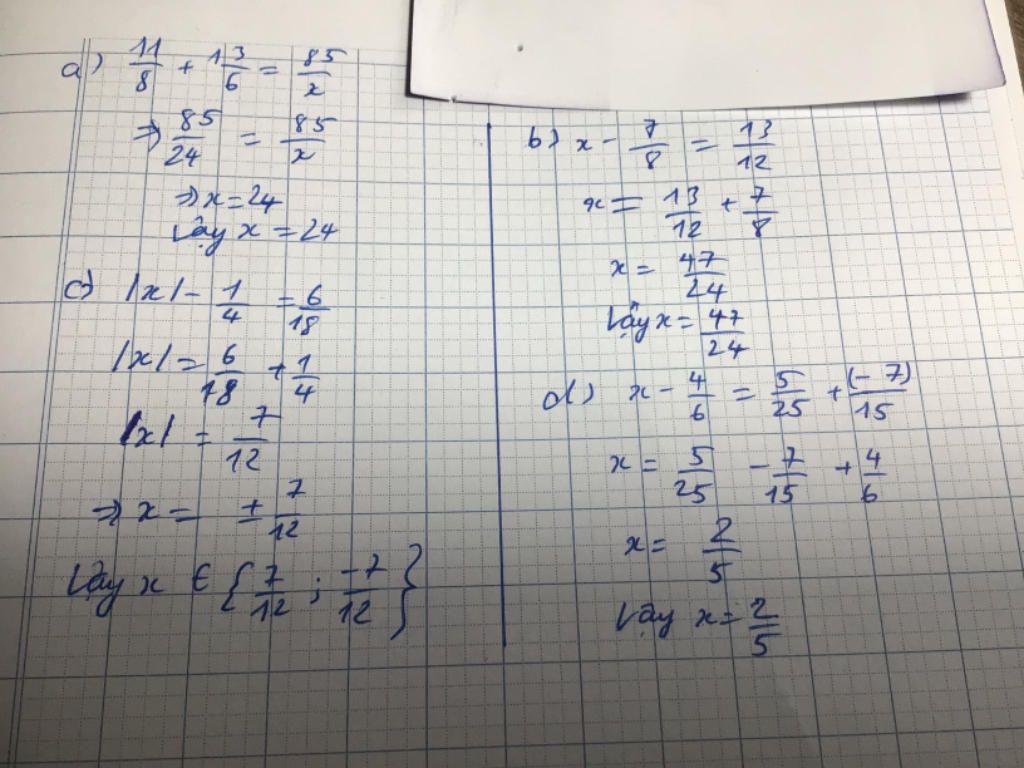 a) 11/8 + 13/6 = 85/x
⇒ 85/24 = 85/x
⇒ x = 24
Vậy x = 24
c) |x| - 1/4 = 6/18
|x| = 6/18 + 1/4
|x| = 7/12
⇒ x = ± 7/12
Vậy x ∈ {7/12 ; -7/12}
b) x - 7/8 = 13/12
x = 13/12 + 7/8
x = 47/24
Vậy x = 47/24
d) x - 4/6 = 5/25 + (-7)/15
x = 5/25 - 7/15 + 4/6
x = 2/5
Vậy x = 2/5